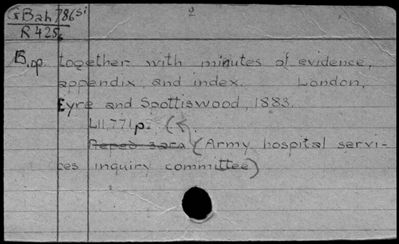 GBah786si
2
R425
together with minutes of evidence,
appendix, and index. London,
Eyre and Spottiswood, 1883.
LII,771p. (
(Army hospital servi-
ces inquiry committee)